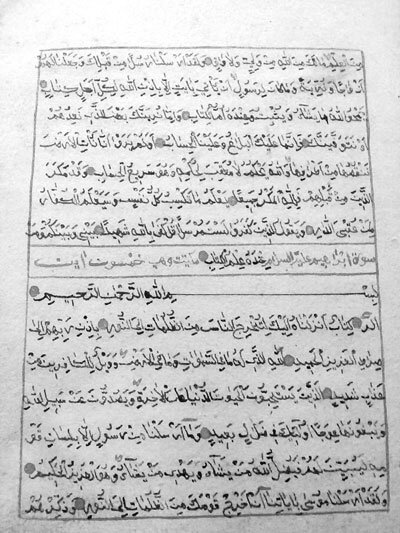 من العلم ما لك من الله من ولي ولا واق ولقد ارسلنا رسلا من قبلك وجعلنا لهم
ازواجا وذرية وما كان لرسول ان يأتي بآية الا باذن الله لكل اجل كتاب
يمحوا الله ما يشاء ويثبت وعنده ام الكتاب وان ما نرينك بعض الذي نعدهم
او نتوفينك فانما عليك البلاغ وعلينا الحساب اولم يروا انا نأتي الارض
ننقصها من اطرافها والله يحكم لا معقب لحكمه وهو سريع الحساب وقد مكر
الذين من قبلهم فلله المكر جميعا يعلم ما تكسب كل نفس وسيعلم الكفار
لمن عقبى الدار ويقول الذين كفروا لست مرسلا قل كفى بالله شهيدا بيني وبينكم ومن
سورة ابراهيم عليه السلام عنده علم الكتاب وهي خمسون آيت
بسم الله الرحمن الرحيم
الر كتاب انزلناه اليك لتخرج الناس من الظلمات الى النور باذن ربهم الى
صراط العزيز الحميد الله الذي له ما في السموات وما في الارض وويل للكافرين من
عذاب شديد الذين يستحبون الحيوة الدنيا على الآخرة ويصدون عن سبيل الله
ويبغونها عوجا اولئك في ضلال بعيد وما ارسلنا من رسول الا بلسان قو
مه ليبين لهم فيضل الله من يشاء ويهدي من يشاء وهو العزيز الحكيم
ولقد ارسلنا موسى بآياتنا ان اخرج قومك من الظلمات الى النور وذكرهم